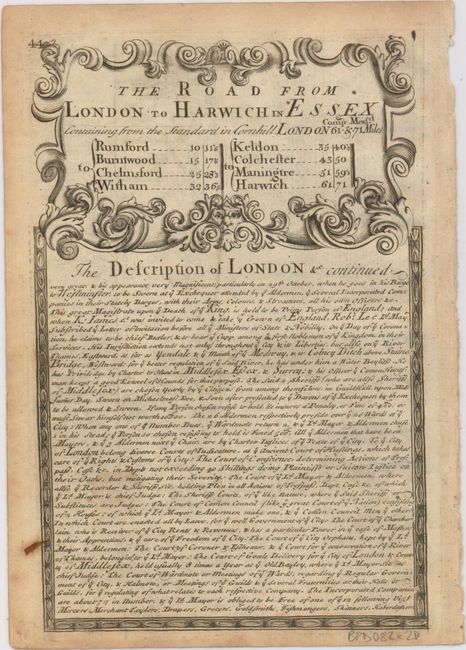 44
THE ROAD FROM
LONDON TO HARWICH IN ESSEX
Comp.d Meas.d
Containing from the Standard in Cornhill LONDON 61 & 71 Miles
to
Rumford 10 11
Burntwood 15 17
Chelmsford 25 28
Witham 32 36
to
Keldon 35 40
Colchester 43 50
Maningtre 51 59
Harwich 61 71
The Description of LONDON &c continued
very great & his appearance very Magnificent, particularly on 29th October, when he goes in his Barge
to Westminster, to be Sworn at ye Exchequer attended by ye Aldermen, & Several Incorporated Com-
panies in their Stately Barges, with their Arms, Colours & Streamers, all his own Officers &c.
This great Magistrate upon ye Death of ye King is held to be Prime Person of England; and
when K. James 1st was invited to come & take ye Crown of England, Robt. Lee Ld. Mayr.
Subscribed ye Letter of Invitation before all ye Ministers of State & Nobility. On Day of ye Corona-
tion, he claims to be chief Butler & to bear ye Cupp among ye first Nobles of ye Kingdom in their
Services. His Jurisdiction extends not only throughout ye City & its Liberties, but also on ye River
Thames, Eastward, as far as Yendale & ye Mouth of ye Medway, & Colney Ditch above Stanes
Bridge, Westward: for ye better regulation of ye Said River, he has under him a Water Bayliff. No
has Privileges by Charter to Hunt in Middlesex, Essex & Surrey; & his Officer ye Comon Hunts-
man keeps a good Kennel of Hounds for that purpose. The Said 2 Sheriffs (who are also Sheriffs
of Middlesex) are chosen Yearly by ye Citizens from among themselves in Guildhall, upon Mid-
sumer Day, Sworn on Michaelmas Eve, & Soon after presented to ye Barons of ye Exchequer by them
to be allowed & Sworn. If any Person chosen refuse to hold, its under a Penalty, or Fine of
must Swear himself not worth
City: When any one of ye Number Dies, ye Wardmote return 2, & ye Ld. Mayor & Aldermen choose
1 in his Stead; ye Person so chosen refusing to hold is Fined All ye Aldermen that have been
Mayors, & ye 3 Aldermen next ye Chair are by Charter Justices of ye Peace of ye City. To ye City
of London belong divers Courts of Judicature, as ye Ancient Court of Hustings, which takes
care of ye Rights & Customs of ye City. The Court of Conscience determining Actions of Debt
past Easter in Debt not exceeding 40 Shillings doing Plaintiff or Suitors Justice on
their Oaths, but mitigating their Severity. The Court of ye Ld. Mayor & Aldermen, where
also ye Recorder & Sheriffs Sit, holding Plea in all Actions of Trespass, Debt, Case &c. of which
ye Ld. Mayor is chief Judge. The Sheriffs Court, of ye like nature, where ye Said Sheriff's
Substitutes are Judges. The Court of Comon Council (like ye great Court of ye Nation) consisting
of 2 Houses, of which ye Ld. Mayor & Aldermen make one, & ye Comon Council Men ye other.
In which Court are enacted all by Laws, for ye well Government of ye City. The Court of ye Chamber-
lain, who is Receiver of ye City Rents & Revenue, & has a particular Power in ye case of Masters
& their Apprentices, & ye care of ye Freedom of ye City. The Court of ye City Orphans, kept by ye Ld.
Mayor & Aldermen. The Courts of Coroner & Escheator, & ye Court for ye conservation of ye River
of Thames, belonging to ye Ld. Mayor. The Court of Goale Delivery for ye City of London & Coun-
ty of Middlesex, held usually 8 times a Year at ye Old Bayley, where ye Ld. Mayor is
chief Judge. The Courts of Wardmote or Meetings of ye Wards, regarding ye Regular Govern-
ment of ye City, & Halmote, or Meetings of ye Guilds & Several Fraternities at their Halls or
Guilds, for ye regulating of what relates to each respective Company. The Incorporated Companies
are about in Number, & ye Ld. Mayor is obliged to be Free of one of ye 12 following Vizt.
Mercers, Merchant Taylors, Drapers, Grocers, Goldsmiths, Fishmongers, Skinners, Haberdashers
BPB082x28